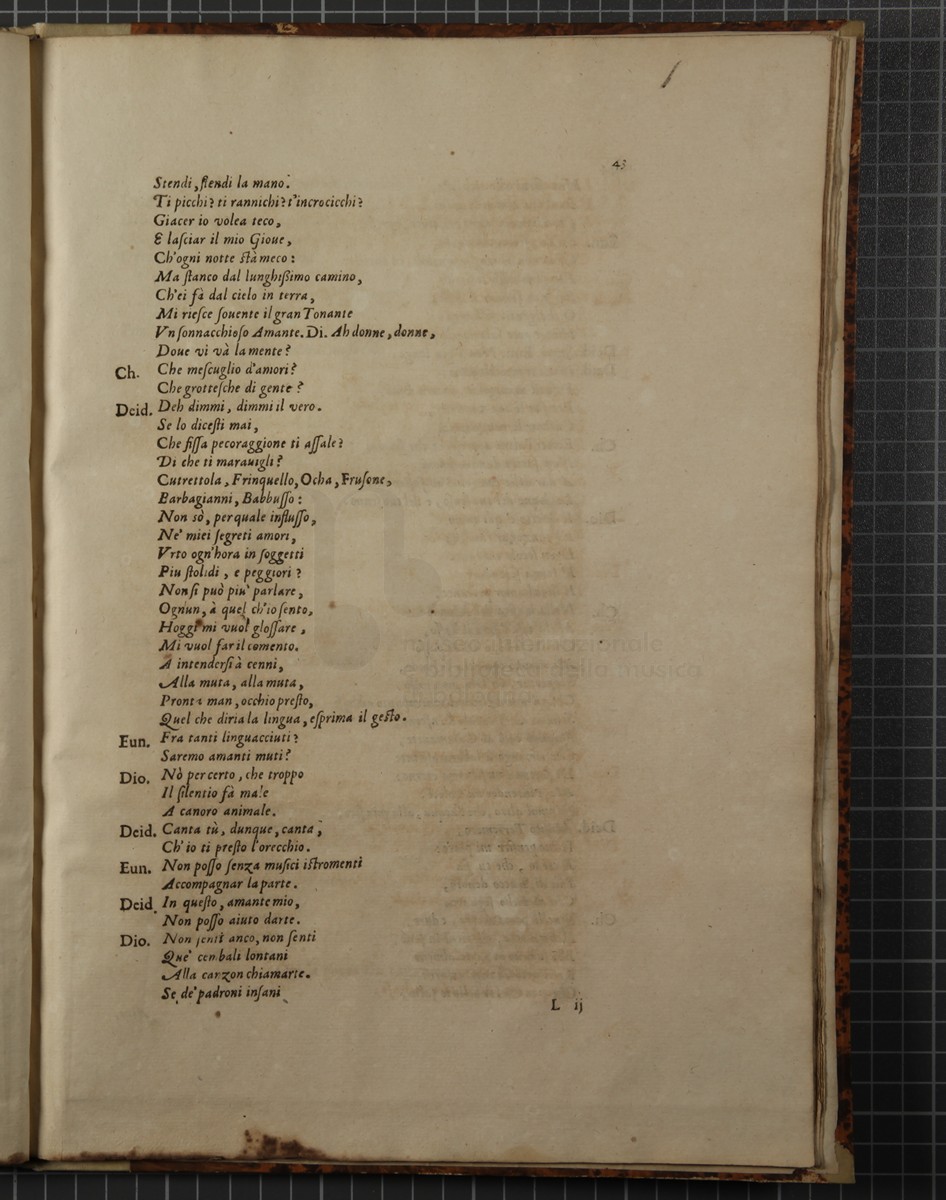 43
Stendi, stendi la mano.
Ti picchi? ti rannichi? t'incrocicchi?
Giacer io volea teco,
E lasciar il mio Gioue,
Ch'ogni notte stà meco:
Ma stanco dal lunghissimo camino,
Ch'ei fà dal cielo in terra,
Mi riesce souente il gran Tonante
Vn sonnacchioso Amante. Di. Ah donne, donne,
Doue vi và la mente?
Ch. Che mescuglio d'amori?
Che grottesche di gente?
Deid. Deh dimmi, dimmi il vero.
Se lo dicesti mai,
Che fissa pecoraggione ti assale?
Di che ti marauigli?
Cutrettola, Frinquello, Ocha, Frusone,
Barbagianni, Babbusso:
Non sò, per quale influsso,
Ne' miei segreti amori,
Vrto ogn'hora in soggetti
Piu stolidi, e peggiori?
Non si può piu' parlare,
Ognun, à quel ch'io sento,
Hoggi mi vuol glossare,
Mi vuol far il comento.
A intendersi à cenni,
Alla muta, alla muta,
Pronta man, occhio presto,
Quel che diria la lingua, esprima il gesto.
Eun. Fra tanti linguacciuti?
Saremo amanti muti?
Dio. Nò per certo, che troppo
Il silentio fà male
A canoro animale.
Deid. Canta tù, dunque, canta,
Ch'io ti presto l'orecchio.
Eun. Non posso senza musici istromenti
Accompagnar la parte.
Deid. In questo, amante mio,
Non posso aiuto darte.
Dio. Non senti anco, non senti
Que' cembali lontani
Alla canzon chiamarte.
Se de' padroni insani
L ij